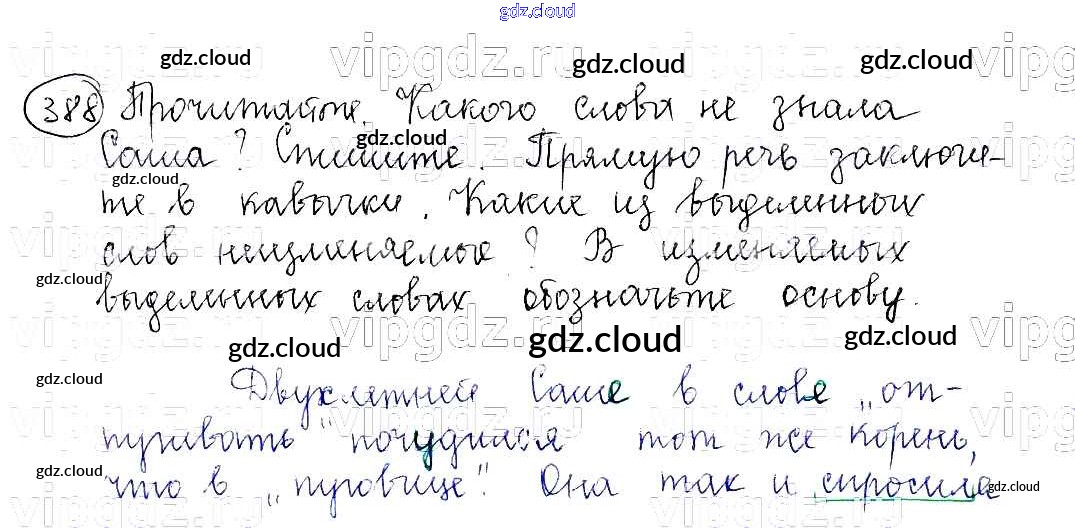 gdz.cloud
vipgdz.ru vipgdz.ru vipgdz.ru vipgdz
gdz.cloud gdz.cloud gdz.cloud
388 Прочитайте. Какого слова не знала
Саша? Спишите. Прямую речь заключи-
gdz.cloud
gdz.cloud
те в кавычки. Какие из выделенных
слов неизменяемые? В изменяемых
gdz.cloud
выделенных словах обозначьте основу.
gdz.cloud gdz.cloud gdz.cloud
gdz.cloud
Двухлетней Саше в слове „от-
пугивать" почудился тот же корень,
gdz.cloud
что в „пуговице". Она так и спросила
gdz.cloud